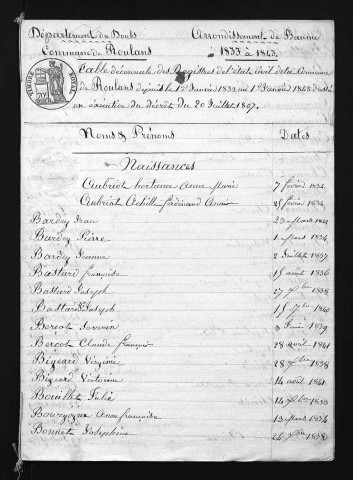 Département du Doubs Arrondissement de Baume
Commune de Roulans 1833 à 1843.
TIMBRE ROYAL
Table décennale des Registres de l'état civil de la Commune
de Roulans depuis le 1er Janvier 1833 au 1er Janvier 1843 dressée
en exécution du décret du 20 Juillet 1807.
Noms & Prénoms Dates
Naissances
Aubriot hortance Anne Marie 7 février 1834
Aubriot Achille ferdinand 25 février 1834
Bardey Jean 23 mars
Bardey Pierre 1 mars 1834
Bardey Jeanne 2 Juillet 1837
Bastard françoise 15 août 1836
Bastard Joseph 27 1838
Bastard Joseph 15 1840
Bercot Severin 1839
Bercot Claude françois 28 avril 1841
Bigeard Virginie 28 1838
Bigeard Victorine 14 avril 1841
Bouillet Julie 14 1838
Bourgogne Anne françoise 13 mars 1834
Bonnet Joséphine 24 1838